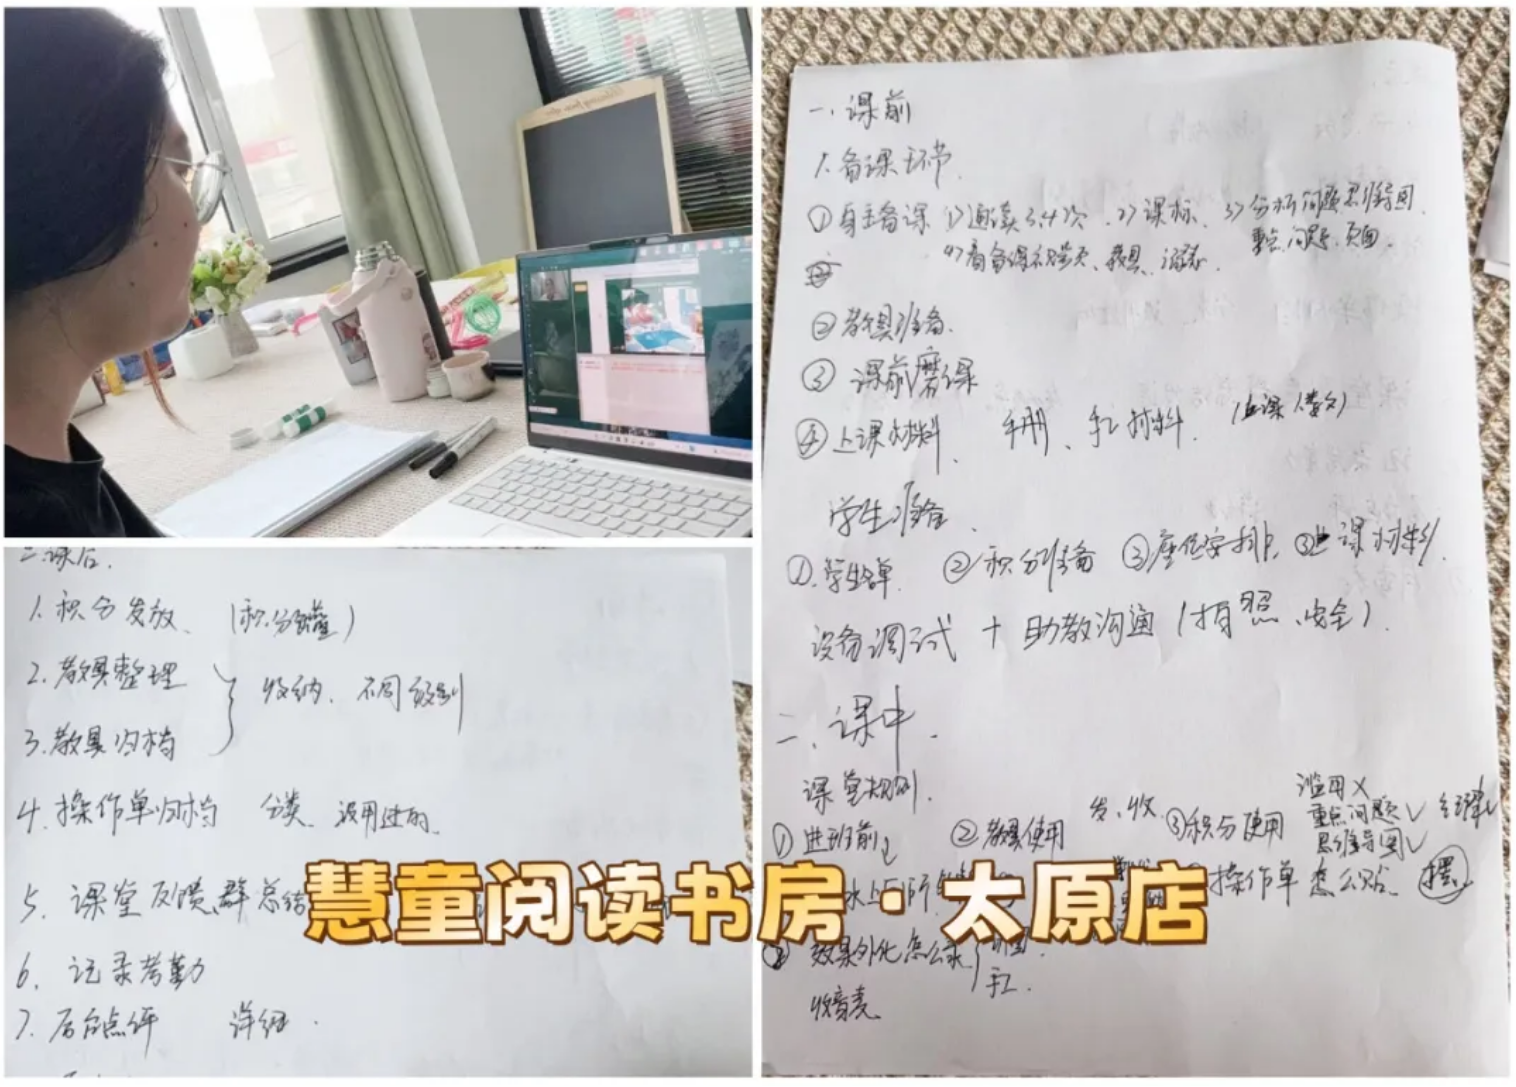 一、课前
1.备课环节
①自主备课 1>通读3.4次 2>课标 3>分析问题思维导图
重点问题、页面
4>看备课
②教具准备
③课前磨课
④上课材料 手册、手工材料
学生准备
①学生名单 ②积分准备 ③座位安排 ③进课材料
设备调试 + 助教沟通(拍照、安全)
二、课中
课堂规则
①进班前 ②教具使用 发、收 ③积分使用
滥用×
重点问题✓
思维导图✓
操作单 怎么贴 摆
效果外化怎么录
手工
三课后
1.积分发放 (积分罐)
2.教具整理
3.教具归档
收纳、不同级别
4.操作单归档 分类、没用过的
5.课堂反馈、群总结
6.记录考勤
7.后台点评 详细
慧童阅读书房·太原店